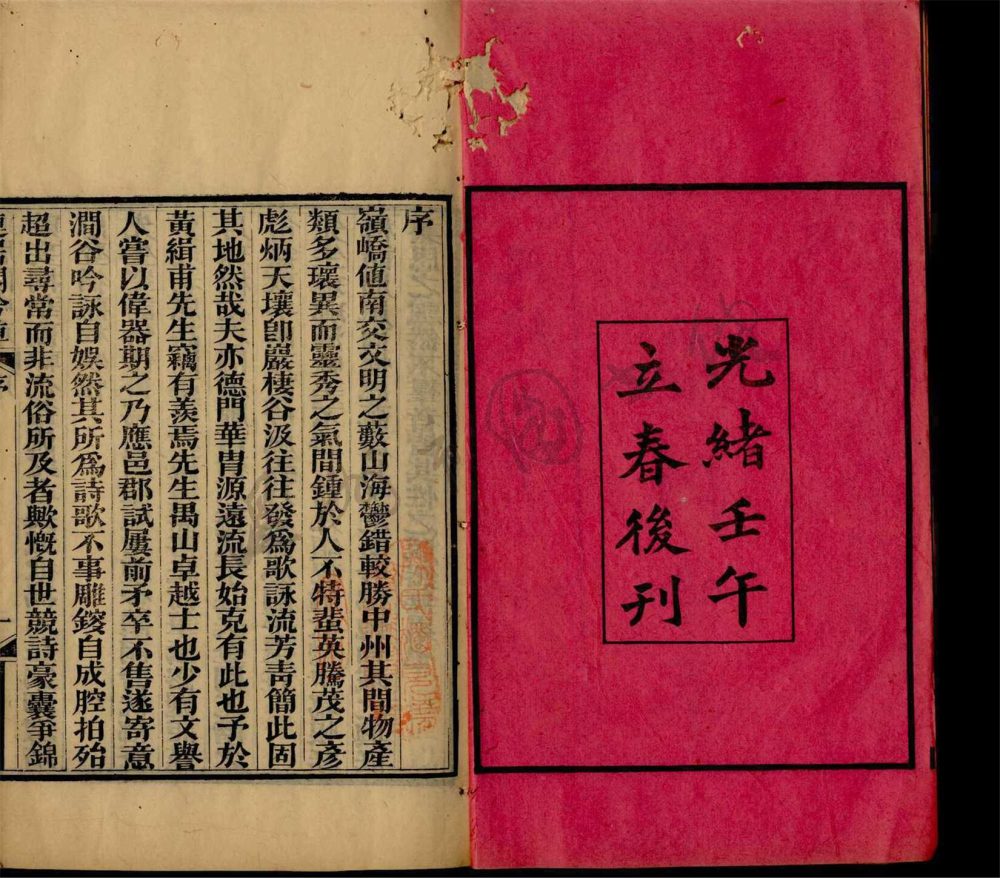 光緒壬午
立春後刊
序
嶺嶠値南交交明之藪山海鬱錯較勝中州其間物產
類多瓌異而靈秀之氣間鍾於人不特蜚英騰茂之彥
彪炳天壤卽巖棲谷汲往往發爲歌詠流芳靑簡此固
其地然哉夫亦德門華胄源遠流長始克有此也予於
黃緝甫先生竊有羨焉先生禺山卓越士也少有文譽
人嘗以偉器期之乃應邑郡試屢前矛卒不售遂寄意
澗谷吟詠自娛然其所爲詩歌不事雕鎪自成腔拍殆
超出尋常而非流俗所及者歟慨自世競詩豪囊爭錦
序
一